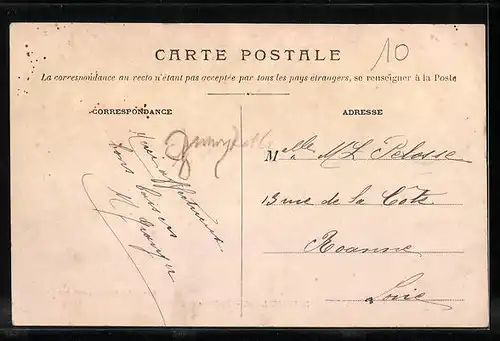 CARTE POSTALE
10
La correspondance au recto n'étant pas acceptée par tous les pays étrangers, se renseigner à la Poste
CORRESPONDANCE
ADRESSE
Melle ML Pelosse
13 rue de la Côte
Roanne
Loire
baisers
M.